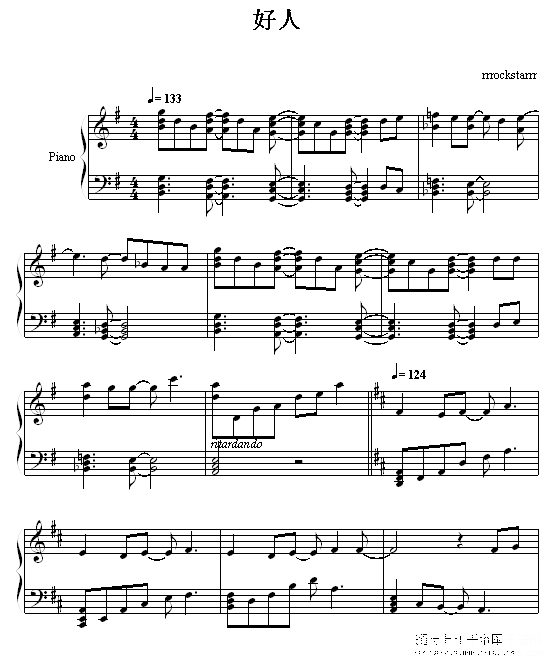 好人
rrockstarrr
= 133
Piano
4
4
4
4
ritardando
= 124